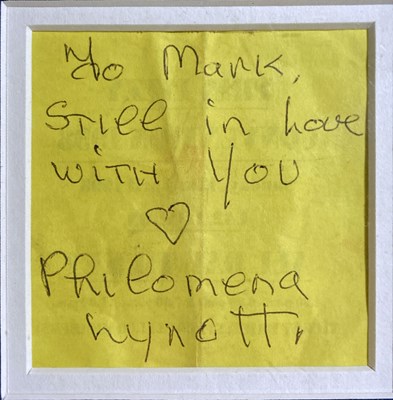 To Mark,
Still in Love
WITH YOU
♡
Philomena
Lynott,